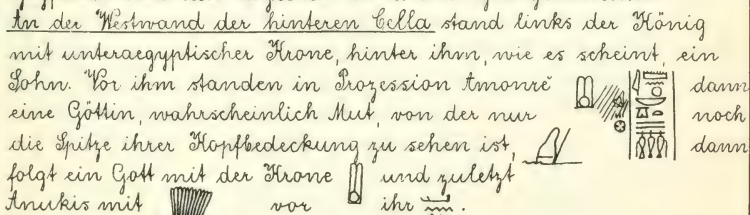 An der Westwand der hinteren Cella stand links der König
mit unteraegyptischer Krone, hinter ihm, wie es scheint, ein
Sohn. Vor ihm standen in Prozession Amonrê dann
eine Göttin, wahrscheinlich Mut, von der nur noch
die Spitze ihrer Kopfbedeckung zu sehen ist, dann
folgt ein Gott mit der Krone und zuletzt
Anukis mit vor ihr .